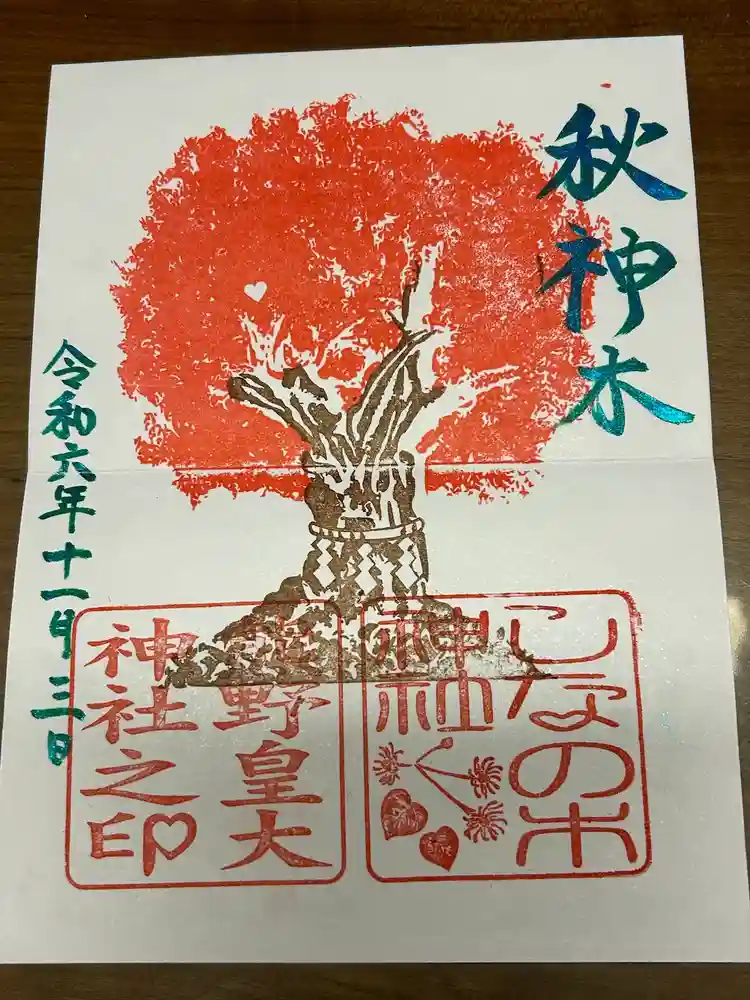 秋神木
しなの木
神社
熊野皇大
神社之印
令和六年十一月三日